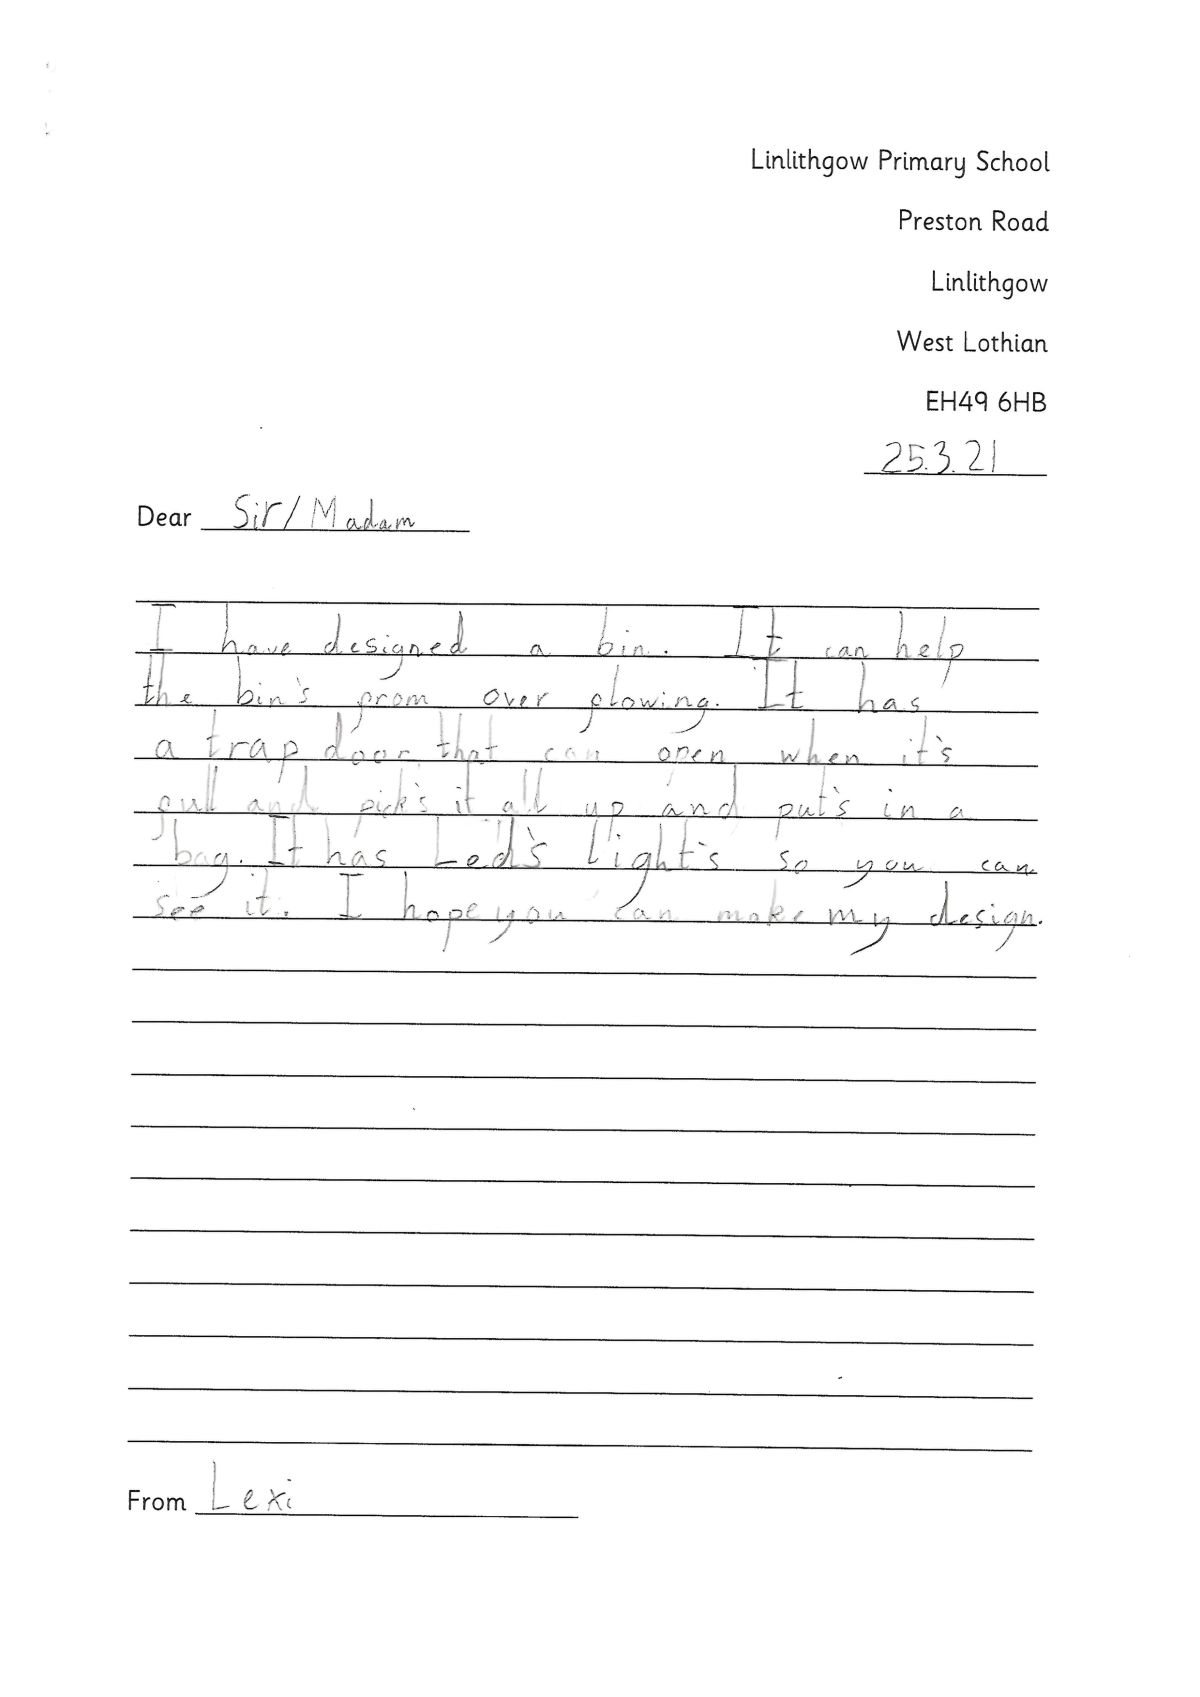 Linlithgow Primary School
Preston Road
Linlithgow
West Lothian
EH49 6HB
25.3.21
Dear Sir/Madam
I have designed a bin. It can help
the bin's from over flowing. It has
a trap door that can open when it's
full and pick's it all up and put's in a
bag. It has Led's light's so you can
see it. I hope you can make my design.
From Lexi